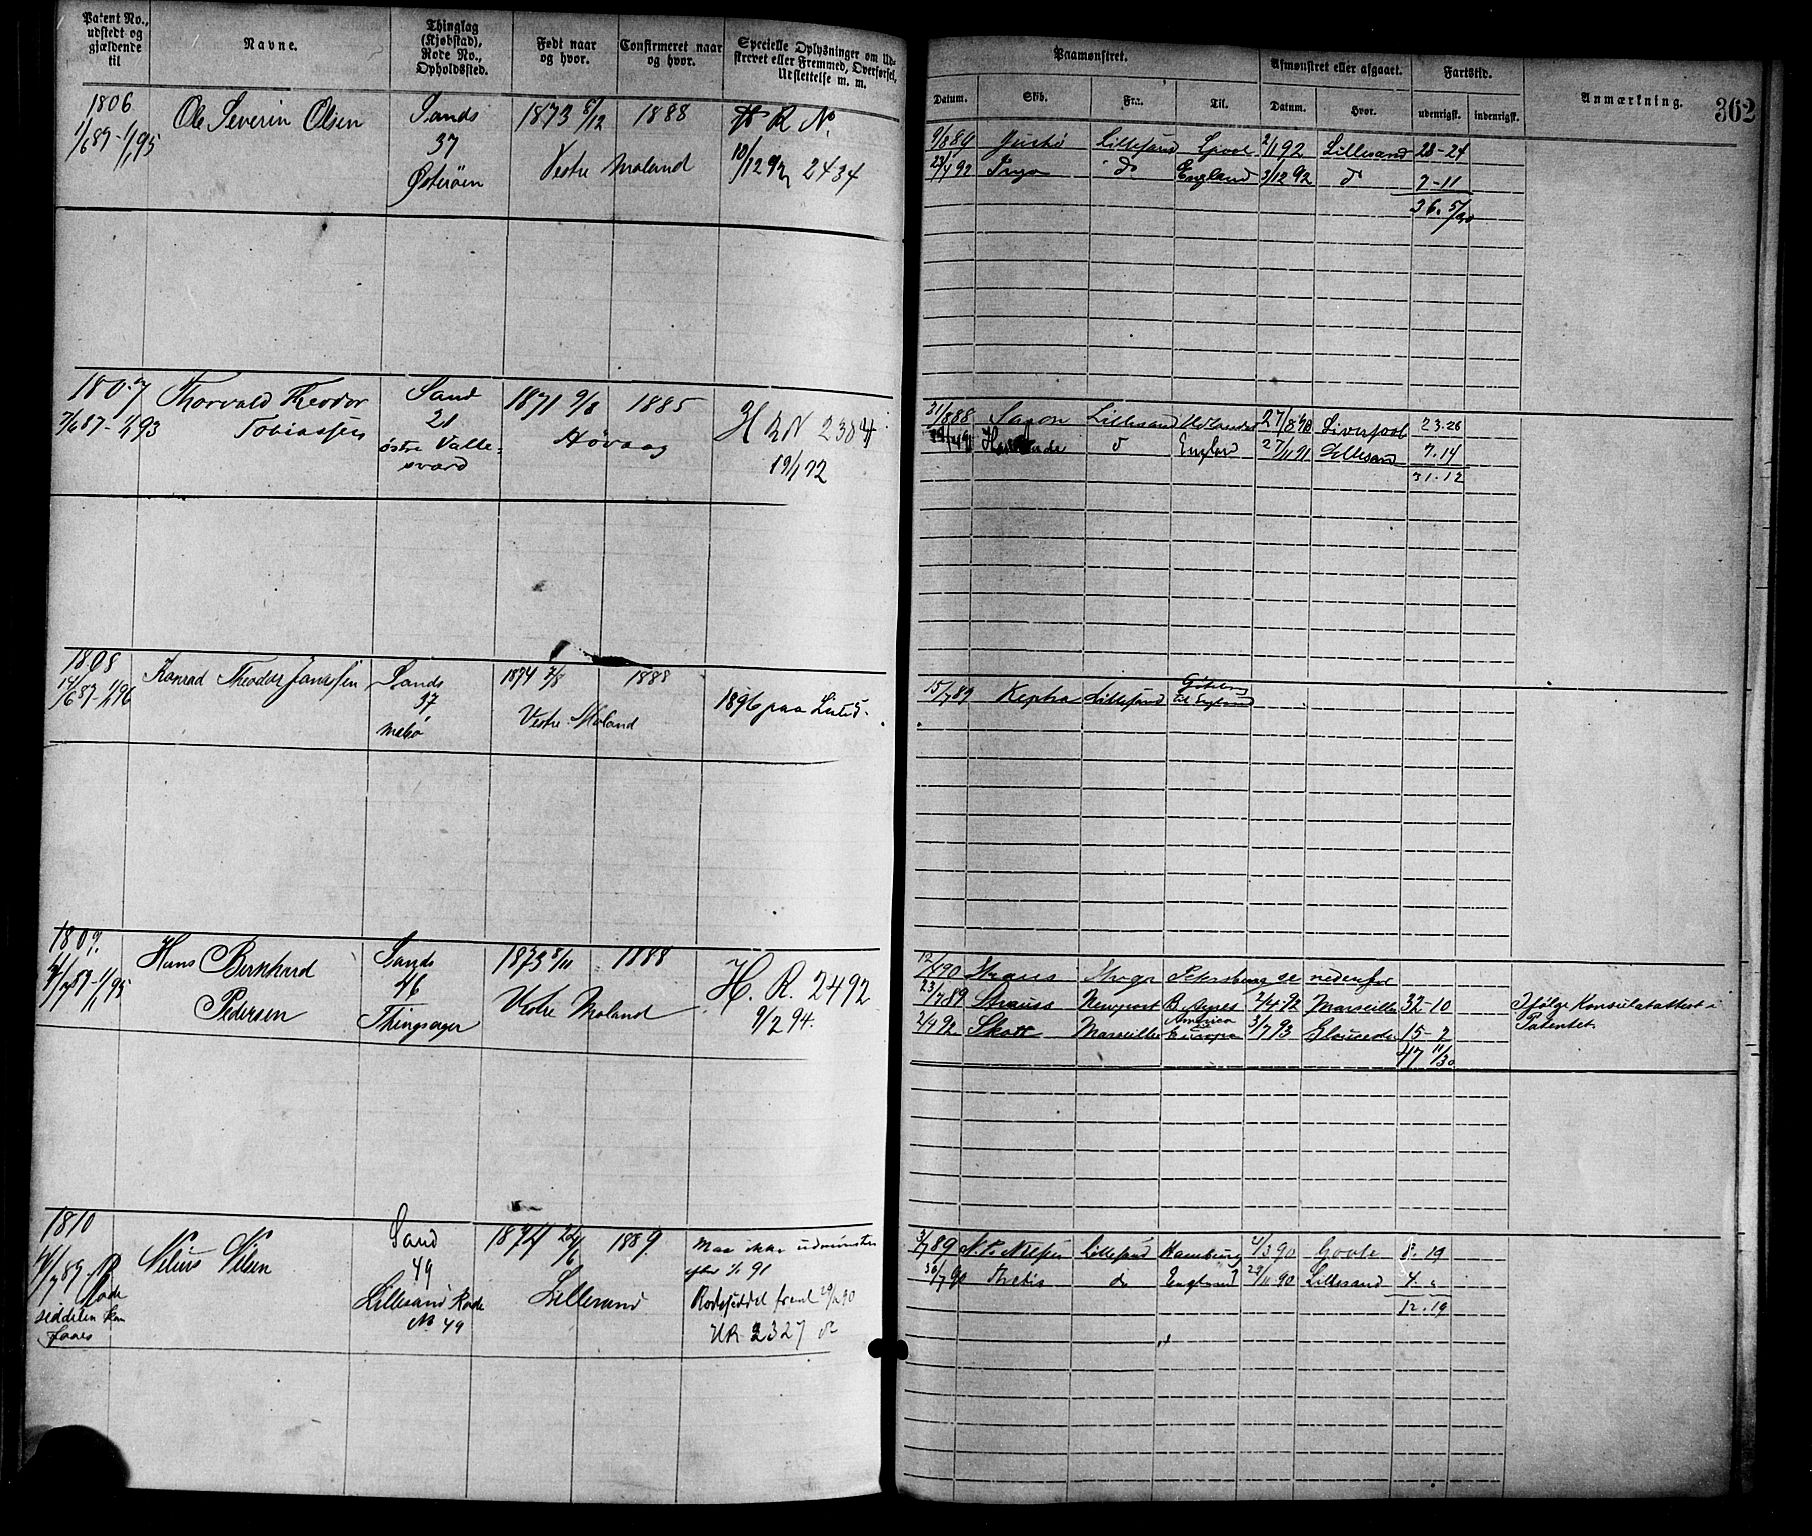 Patent No., udstedt og gjældende til
Navne.
Thinglag (Kjøbstad), Rode No., Opholdssted.
Født naar og hvor.
Confirmeret naar og hvor.
Specielle Oplysninger om Udskrevet eller Fremmed, Overførsel, Udslettelse m. m.
Paamønstret.
Afmønstret eller afgaaet.
Fartstid.
Anmærkning.
362
Datum.
Skib.
Fra.
Til.
Datum.
Hvor.
udenrigsk.
indenrigsk.
1806
1/6 87-1/1 95
Ole Severin Olsen
Sands
37
Østerøen
1873 8/12
1888
Vestre Moland
H R No
10/12 92 2434
9/8 89
Lillesand
2/1 92 Lillesand 28-24
23/4 92
do England 3/12 92 do 7-11
36. 5/30
1807
7/6 87-1/1 93
Thorvald Theodor
Tobiassen
Sand
21
østre Vallesværd
1871 9/8 1885
Høvaag
H R N 2384
31/8 88 Saxon Lillesand Udlandet 27/8 90 Liverpool 23.26
do England 27/11 91 Lillesand 7.14
31.12
1808
14/6 87 1/1 96
Konrad Theodor Janssen
Sands
37
1874 7/8 1888
Vestre Moland
1896 paa
15/7 89 Kephas Lillesand
til England
1809.
1/1 95
Hans Bernhard
Pedersen
Sands
46
Thingsager
1873 8/11 1888
Vestre Moland
H. R. 2492
9/2 94.
12/4 90 Strauss
se nedenfor
23/7 89 Strauss Newport B. Ayres 2/4 92 Marseille 32-10
Ifølge Konsulatattest i
Patentet.
2/4 92 Skott Marseille America Europa 3/7 93
15-7
47 11/30
1810
Rode
siddelen kan
faaes
Nilius Nilsen
Sand
49
Lillesand Rode
No. 49
1874 22/6 1889.
Lillesand
Maa ikke udmønstres
efter 1/1 91
Rodeseddel freml 29/12 90
HR 2327
3/7 89 N. P. Nielsen Lillesand Hamburg 4/3 90 Goole 8. 19
30/7 90 Thetis do England 29/11 90 Lillesand 4. "
12.19